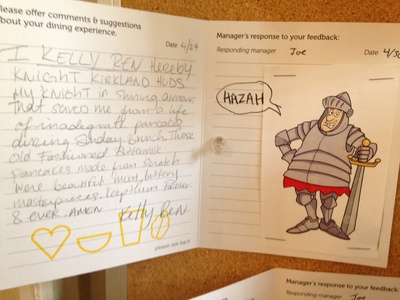 Please offer comments & suggestions
about your dining experience.
Date 4/29
I KELLY BEN Hereby
KNIGHT KIRKLAND HUDS
My KNIGHT in Shining armor
That saved me from a life
of inadequate pancakes
during Sunday Brunch. These
Old Fashioned Buttermilk
pancakes made from scratch
were beautiful moist, buttery
masterpieces. Keep them forever
& ever. AMEN Kelly BEN
please see back
Manager's response to your feedback:
Responding manager Joe Date 4/30
HAZAH
Manager's response to your feedback
Responding manager Joe